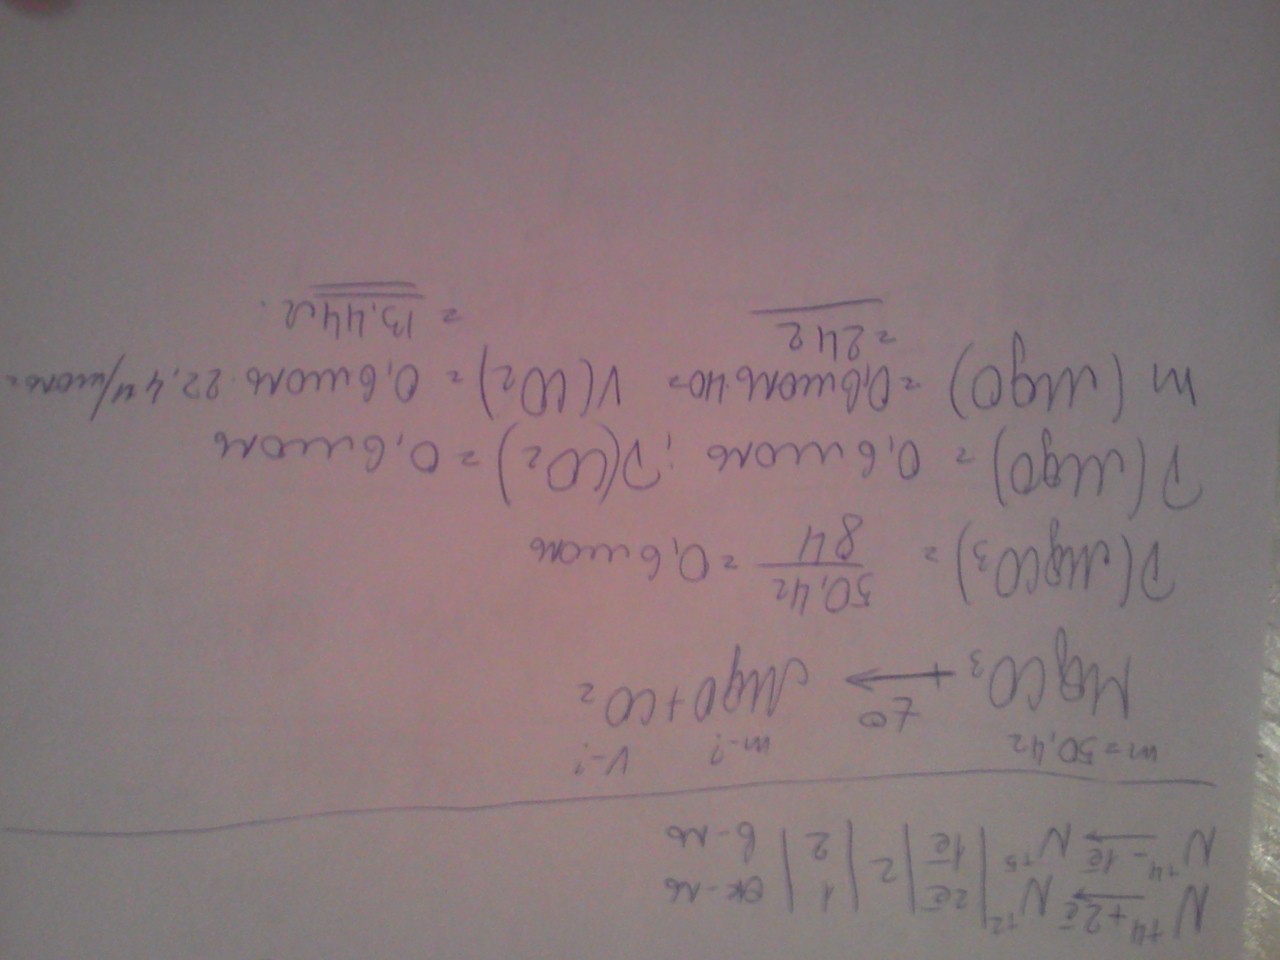 N⁺⁴ + 2ē → N⁺² | 2ē | 2 | 1 | ок-ль
N⁺⁴ - 1ē → N⁺⁵ | 1ē | | 2 | в-ль
m = 50,4г m-? V-?
MgCO₃ →t° MgO + CO₂
ν(MgCO₃) = 50,4г / 84 = 0,6 моль
ν(MgO) = 0,6 моль; ν(CO₂) = 0,6 моль
m (MgO) = 0,6 моль·40= V(CO₂) = 0,6 моль·22,4л/моль=
=24г = 13,44л.